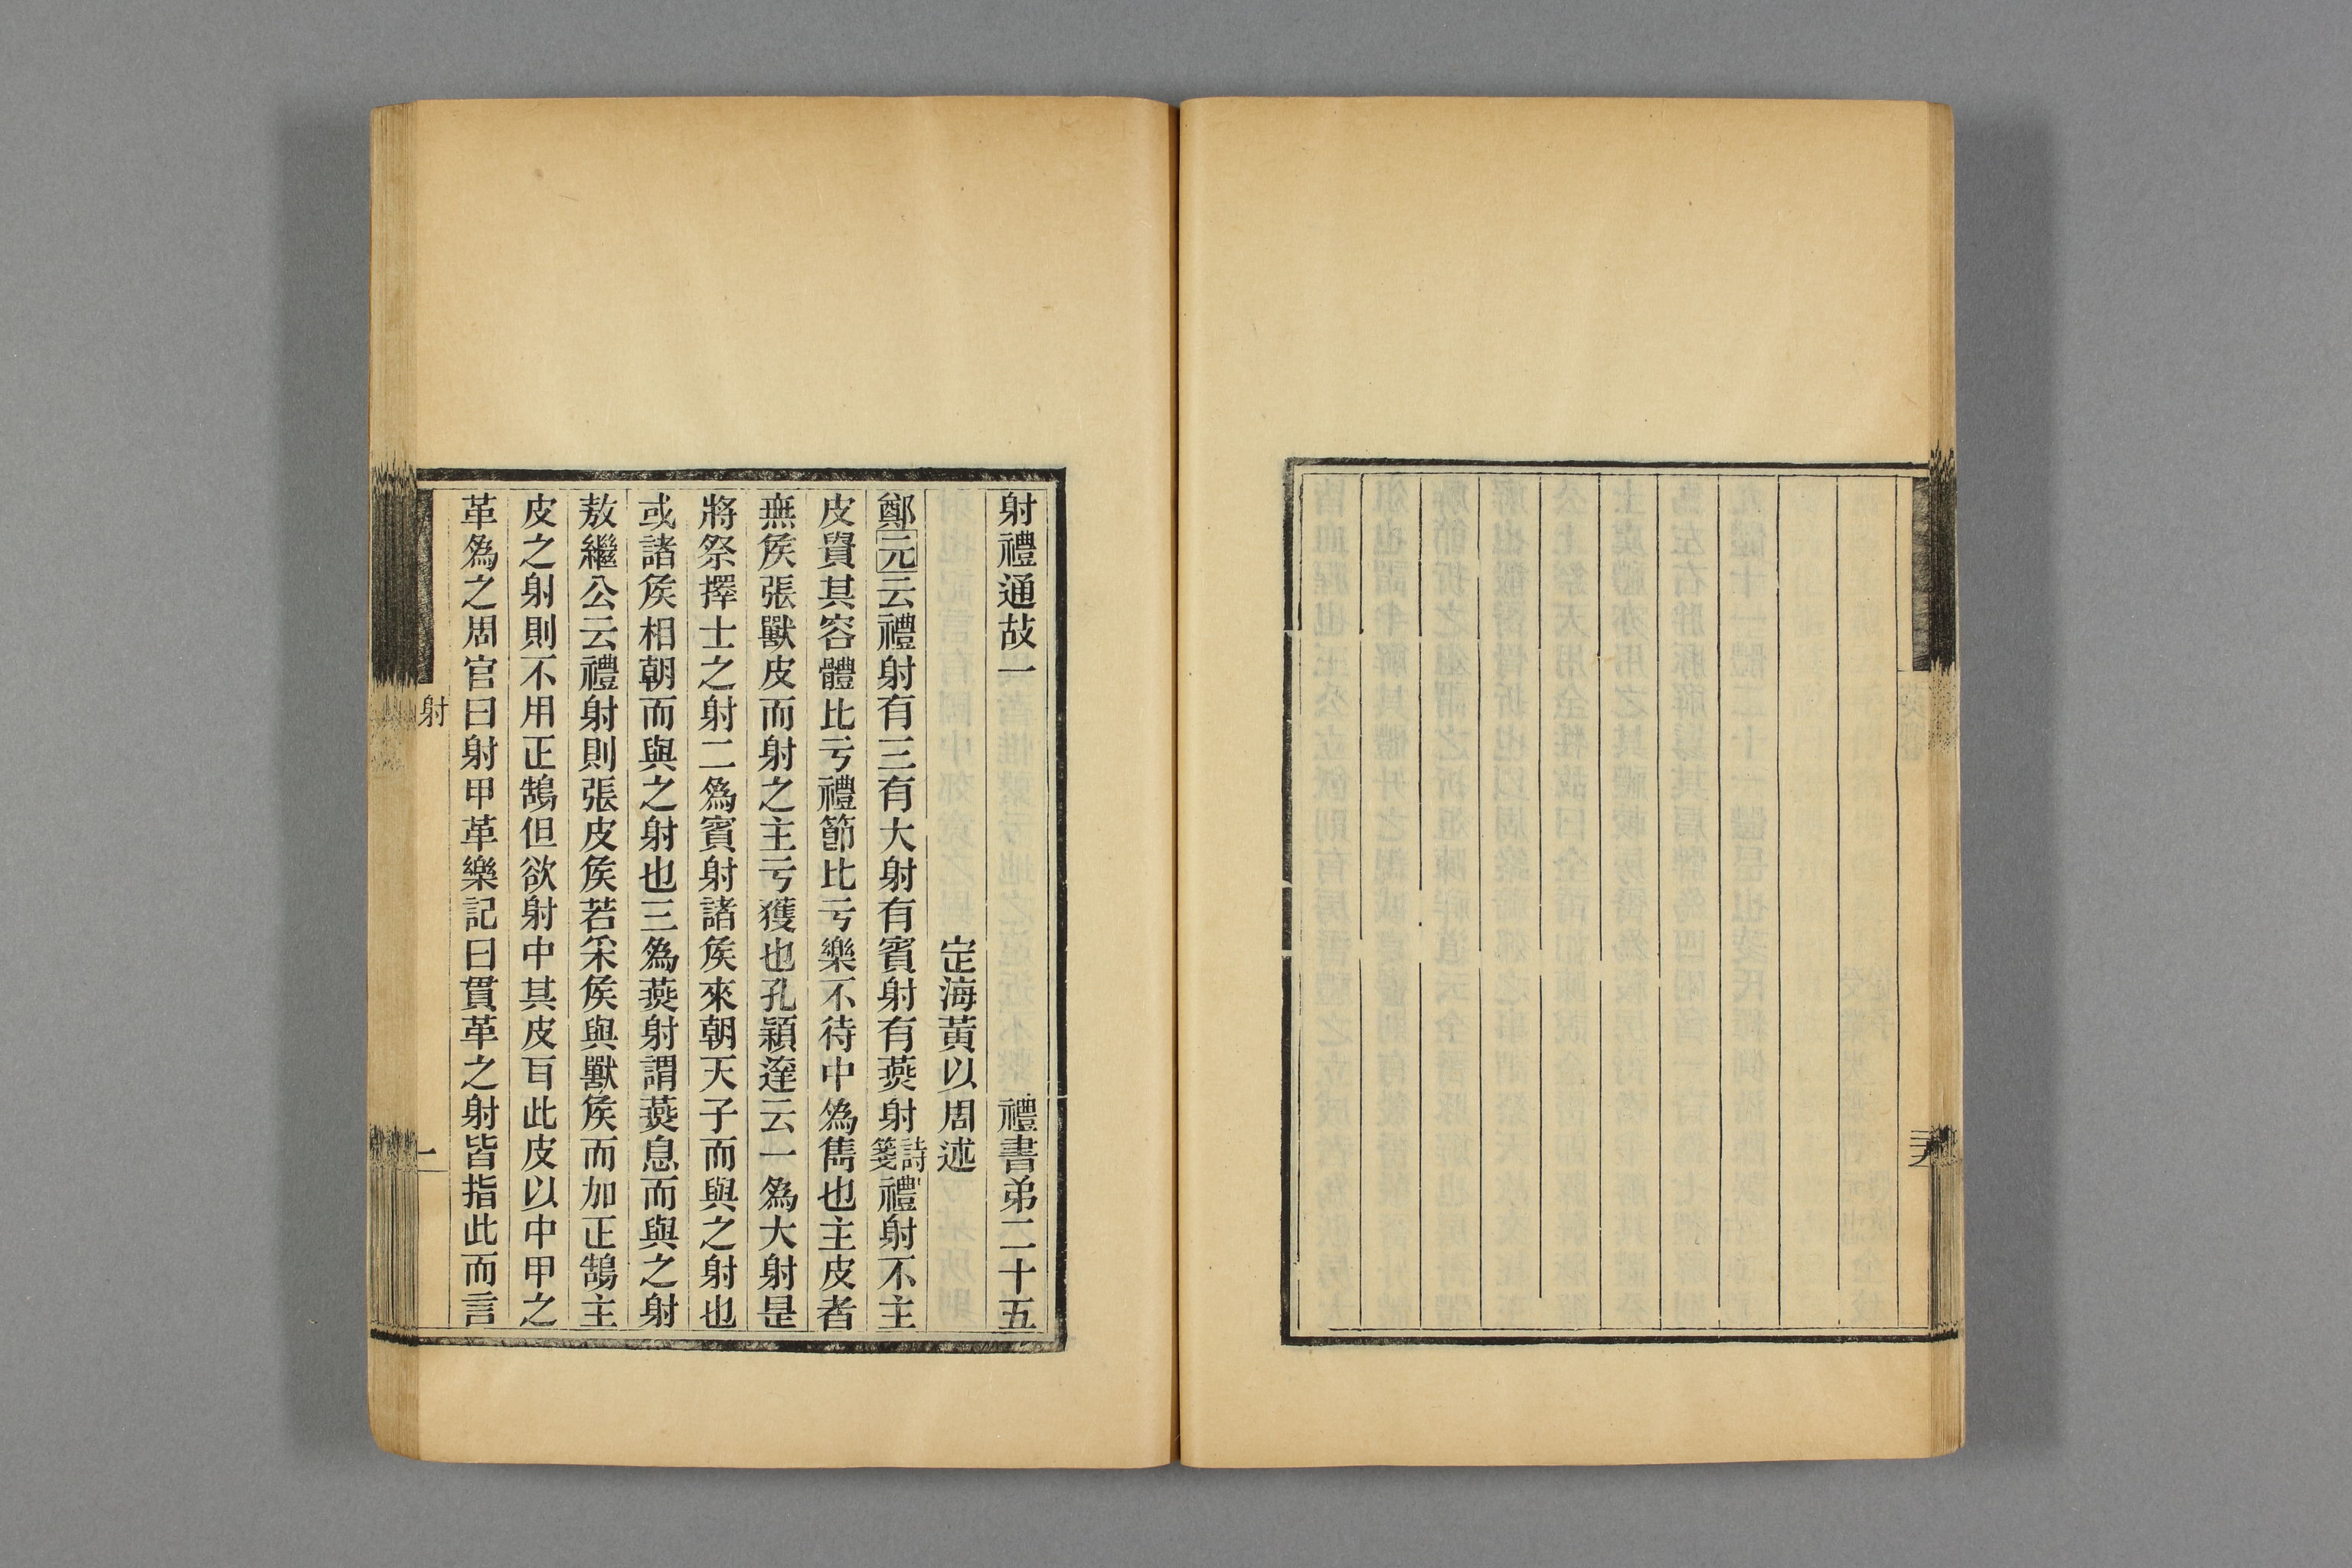 射禮通故一 禮書弟二十五
定海黃以周述
鄭元云禮射有三有大射有賓射有燕射詩箋禮射不主
皮貴其容體比亏禮節比亏樂不待中爲雋也主皮者
無矦張獸皮而射之主亏獲也孔穎達云一爲大射是
將祭擇士之射二爲賓射諸矦來朝天子而與之射也
或諸矦相朝而與之射也三爲燕射謂燕息而與之射
敖繼公云禮射則張皮矦若采矦與獸矦而加正鵠主
皮之射則不用正鵠但欲射中其皮耳此皮以中甲之
革爲之周官曰射甲革樂記曰貫革之射皆指此而言
射
一